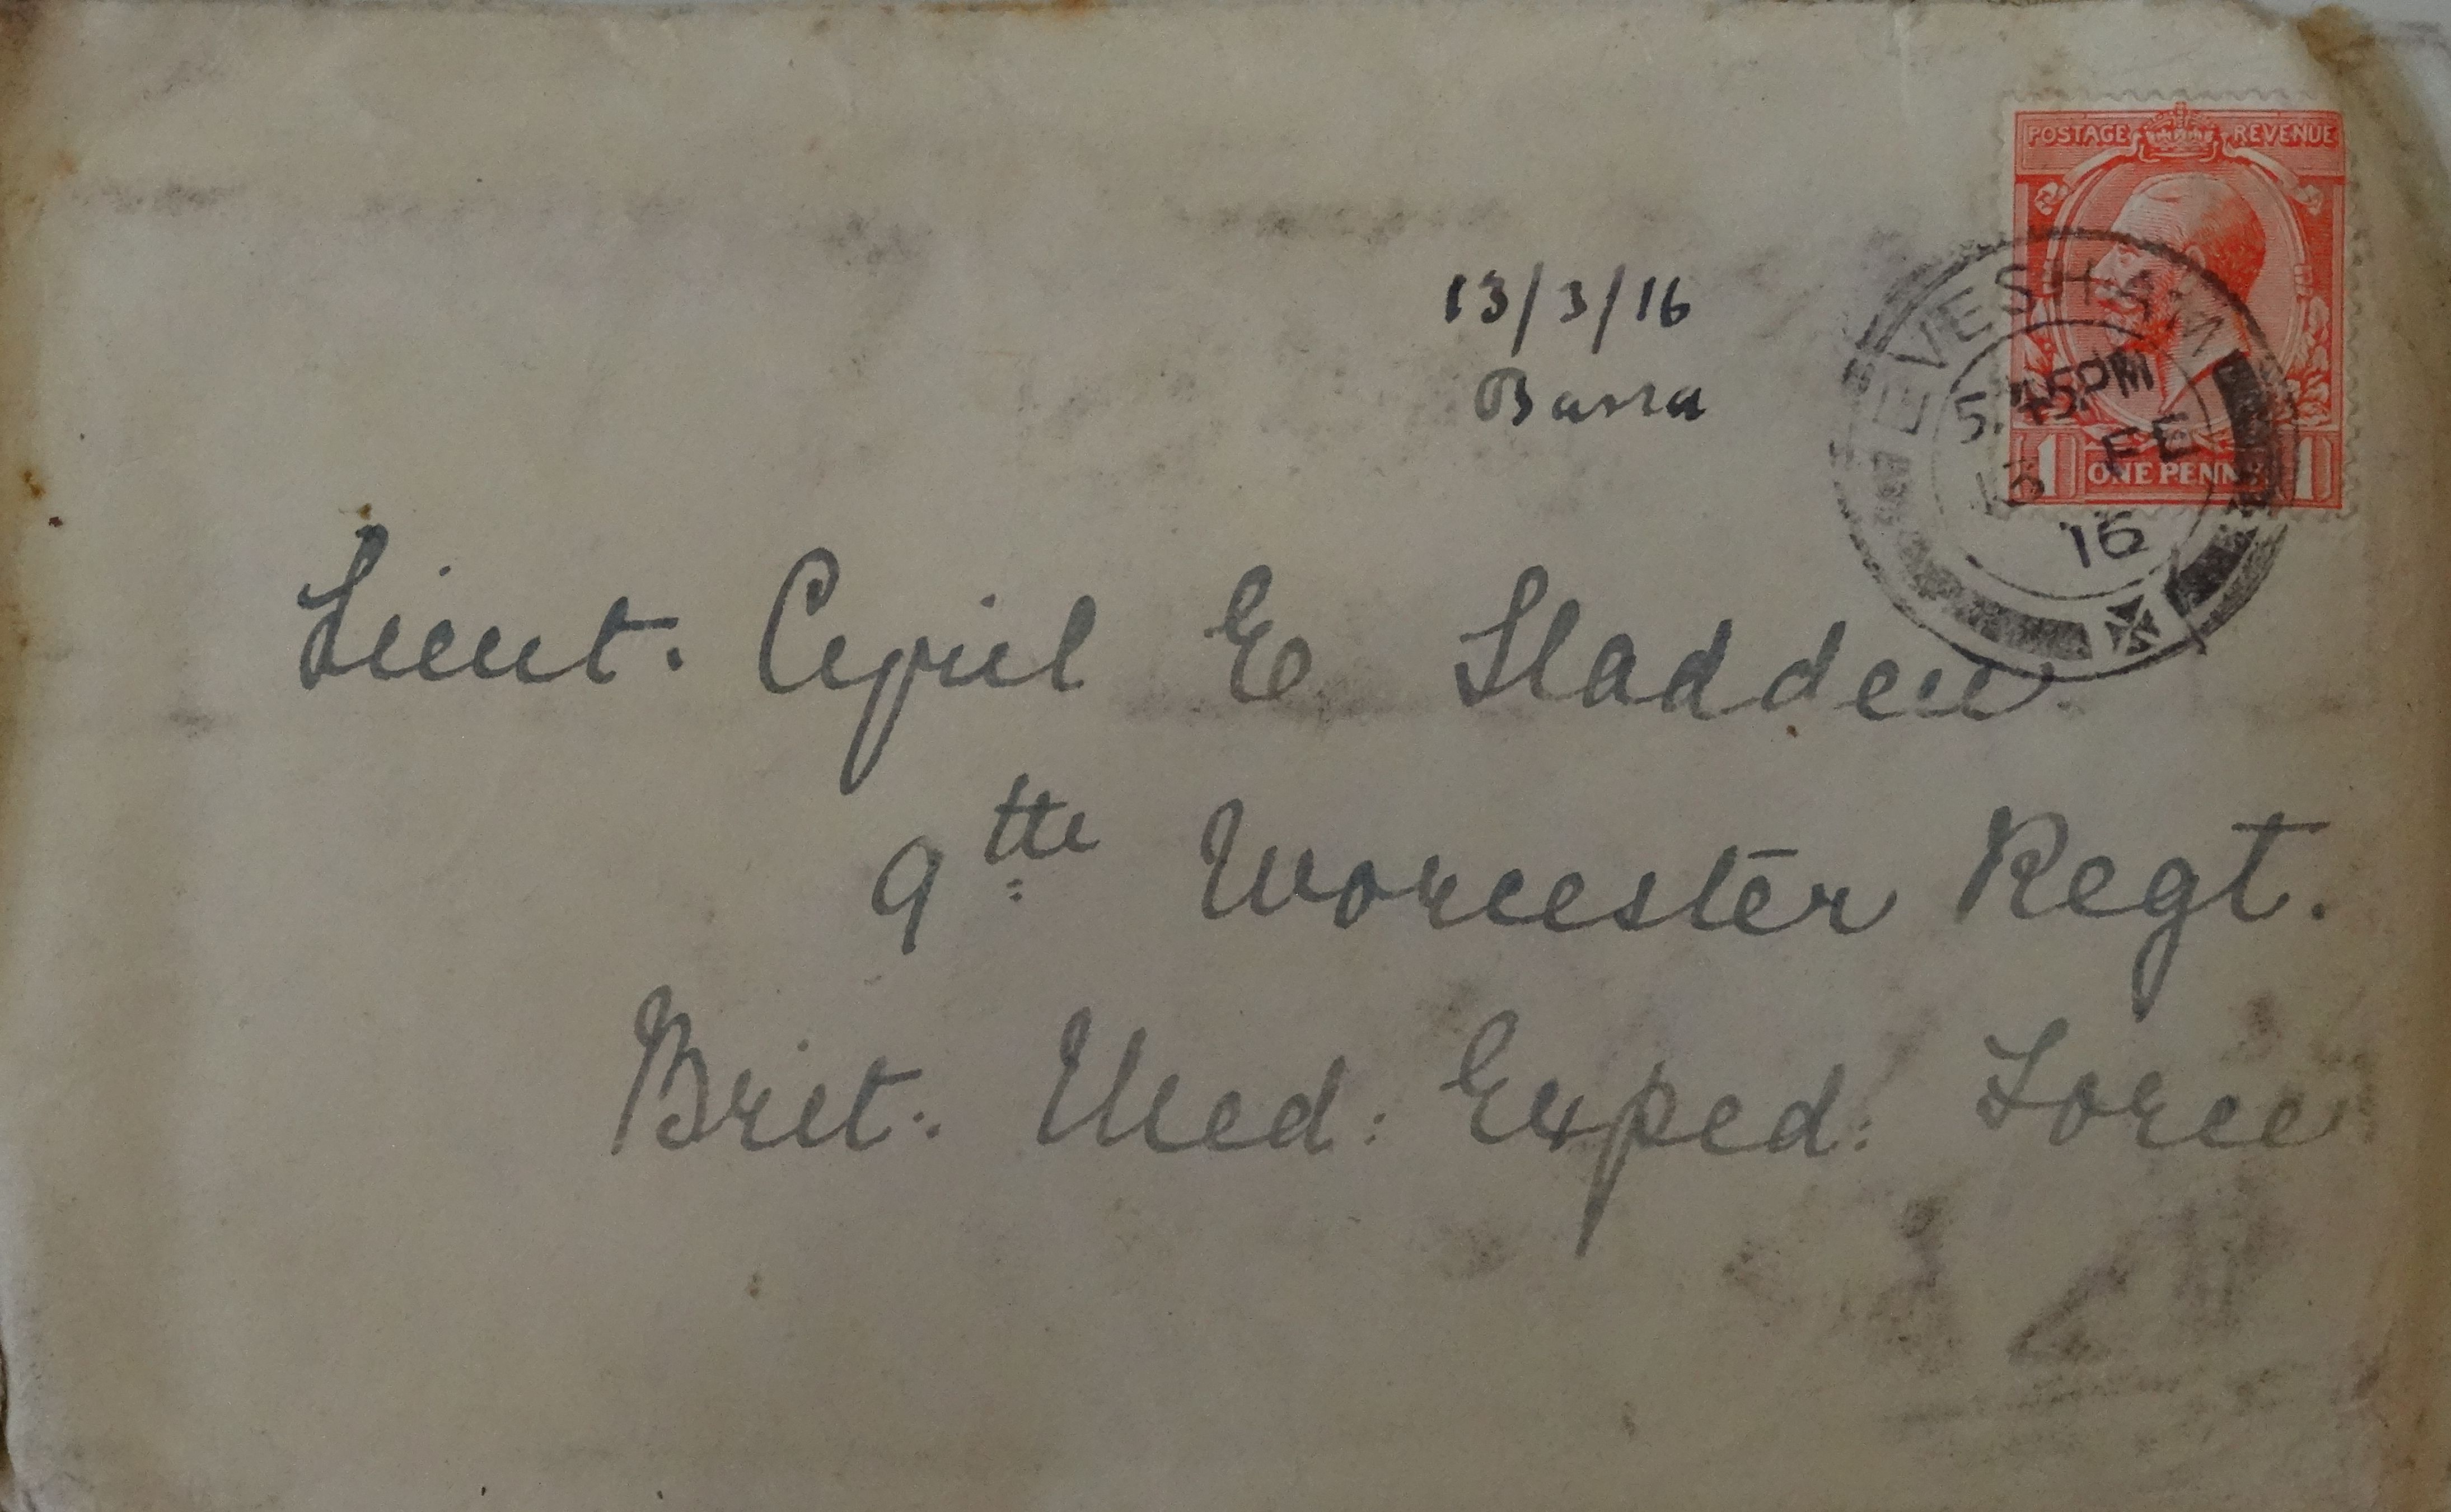 POSTAGE REVENUE
13/3/16
Basra
EVESHAM
5.45PM
13 FE
16
1 ONE PENNY 1
Lieut. Cyril E Sladden
9th Worcester Regt.
Brit. Med: Exped: Force